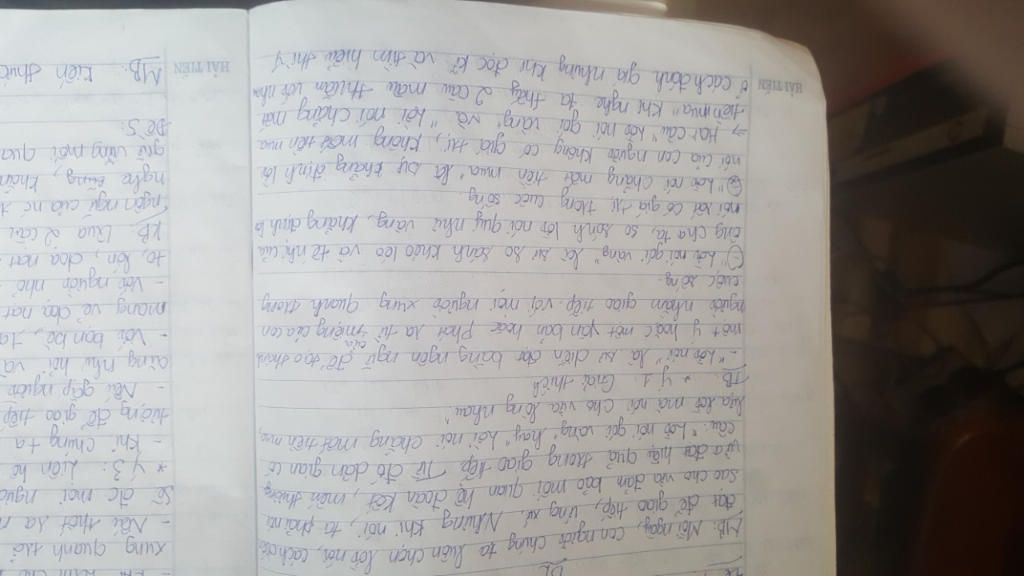 BL
MB. Mỗi ngày, con người chúng ta luôn chọn lời nói, cách diễn
đạt để giao tiếp, ứng xử. Nhưng khi nói, ta phải nói
sao cho vừa đảm bảo mối quan hệ đoàn kết, thân thiện,
vừa đạt hiệu quả trong giao tiếp. Từ đó dân gian có
câu: "Lời nói gói vàng" hay "Lời nói chẳng mất tiền mua,
Lựa lời mà nói cho vừa lòng nhau"
TB. * Ý 1. Giải thích
- "Lời nói" là sự diễn đạt bằng ngôn ngữ để tạo thành
một ý hoặc một văn bản hoặc phát ra từ miệng của con
người nhằm giao tiếp với mọi người xung quanh trong
cuộc sống.
"Lời nói gói vàng" là sự so sánh khéo léo và tế nhị của
ông cha ta, so sánh lời nói quý như vàng, khẳng định lời
nói rất có giá trị trong cuộc sống.
"Lời nói chẳng mất tiền mua" là sự khẳng định lời
nói của con người không có giá trị, không mất tiền mua
→ Hai câu "Lời nói gói vàng" và "Lời nói chẳng mất
tiền mua" khi nghe ta thấy 2 câu mâu thuẫn với nhau
ở cách đánh giá nhưng khi đọc kĩ và tìm hiểu thì ý
HẢI TIẾN
xung quanh
- Nếu thốt ra
sẽ mọi người
* Ý 3: Liên hệ
- Khi chúng ta
tượng để giao tiếp
- Nếu gặp người
cũng như hỏi và
- Với bạn bè, ta
mang vẻ dọa nạt
- Với người nhỏ
to, lớn, dọa nạt
KB. Qua 2 câu
ngôn ngữ của nó
nghe
giữ vững mối qua
Đề 5:
MB. Kiến thức
HẢI TIẾN